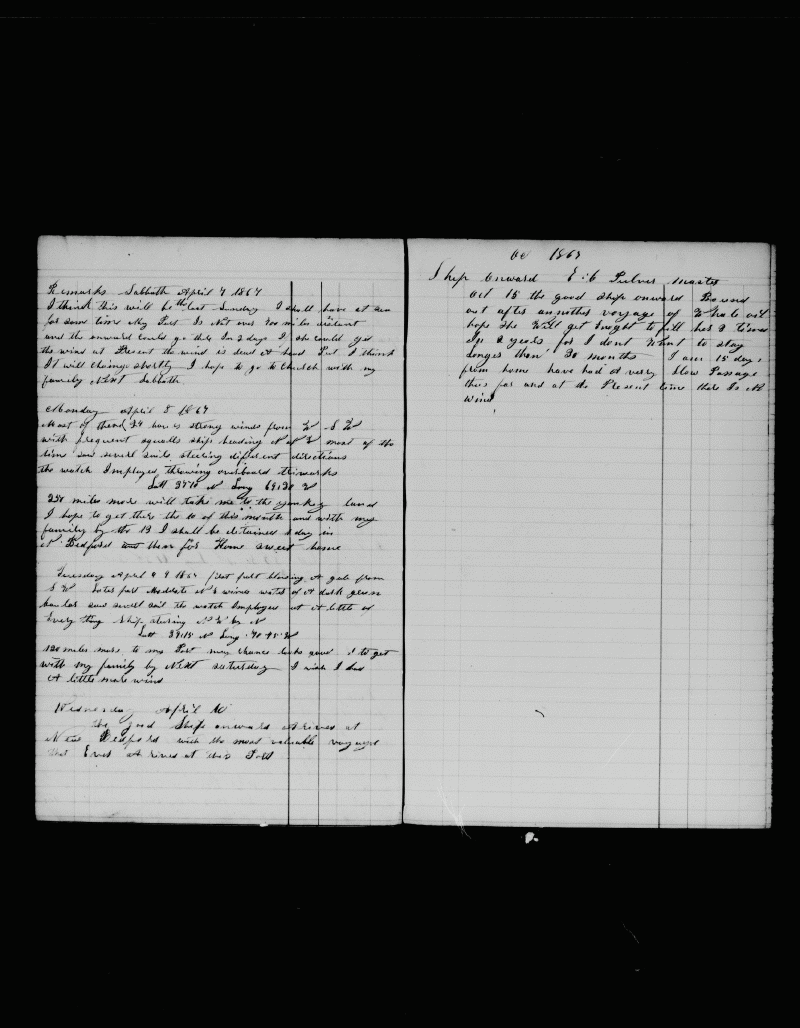 Remarks Sabbath April 7 1867
I think this will be the last Sunday I shall have at sea
for some time My Port Is Not over 400 miles distant
and the onward could go there In 2 days If she could get
the wind at Present the wind is dead A head But I think
It will change shortly I hope to go to Church with my
family Next Sabbath
Monday April 8 1867
Most of these 24 hours strong winds from W S W
with frequent squalls ship heading N N W most of the
time saw severl sails steering different directions
the watch Imployed throwing overboard tryworks
Latt 37 10 N Long 69:30 W
250 miles more will take me to the yankey land
I hope to get there the 10 of this month and with my
family by the 13 I shall be detained 1 day in
N Bedford and then for Home sweet home
Tuesday April 9 1867 first part blowing A gale from
S W Later part Moderate N E winds
saw severl sail the watch Employed at A little of
Every thing Ship steering N W by N
Latt 39:15 N Long 70 45 W
120 miles more to my Port my chance looks good to get
with my family by Next saturday I wish I had
A little more wind
Wednesday April 10
the good Ship onward Arived at
New Bedford with the most valuable voyage
that Ever Arived at this Port
Oc 1867
Ship Onward Pulver Master
Oct 15 the good ship onward Bound
out after annother voyage of Whale oil
hope she Will get Enoght to fill her 2 times
In 2 years for I dont Want to stay
longer than 30 months I am 15 days
from home have had A very slow Passage
thus far and at the Present time there Is No
wind